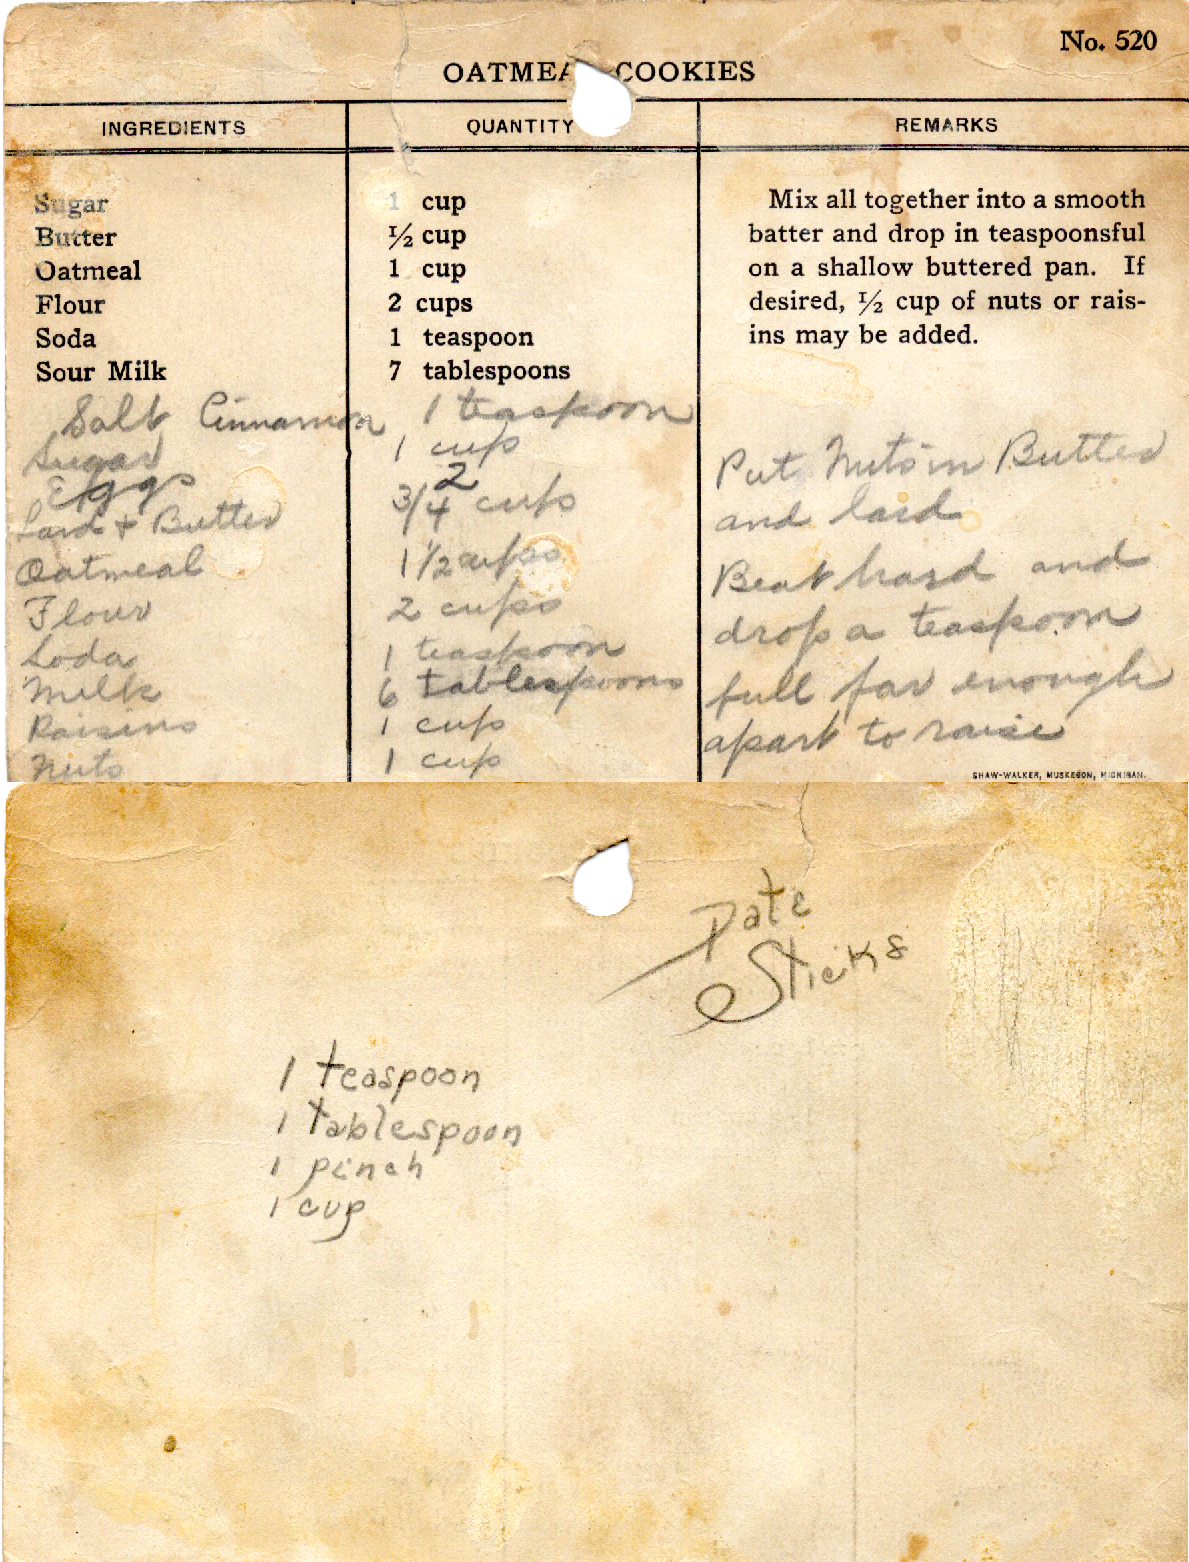 No. 520
OATMEA COOKIES
INGREDIENTS QUANTITY REMARKS
Sugar 1 cup
Butter 1/2 cup
Oatmeal 1 cup
Flour 2 cups
Soda 1 teaspoon
Sour Milk 7 tablespoons
Mix all together into a smooth
batter and drop in teaspoonsful
on a shallow buttered pan. If
desired, 1/2 cup of nuts or rais-
ins may be added.
Salt Cinnamon 1 teaspoon
Sugar 1 cup
Eggs 2
Lard + Butter 3/4 cups
Oatmeal 1 1/2 cups
Flour 2 cups
Soda 1 teaspoon
Milk 6 tablespoons
Raisins 1 cup
Nuts 1 cup
Put Nuts in Butter
and lard
Beat hard and
drop a teaspoon
full far enough
apart to raise
SHAW-WALKER, MUSKEGON, MICHIGAN.
Date
Sticks
1 teaspoon
1 tablespoon
1 pinch
1 cup